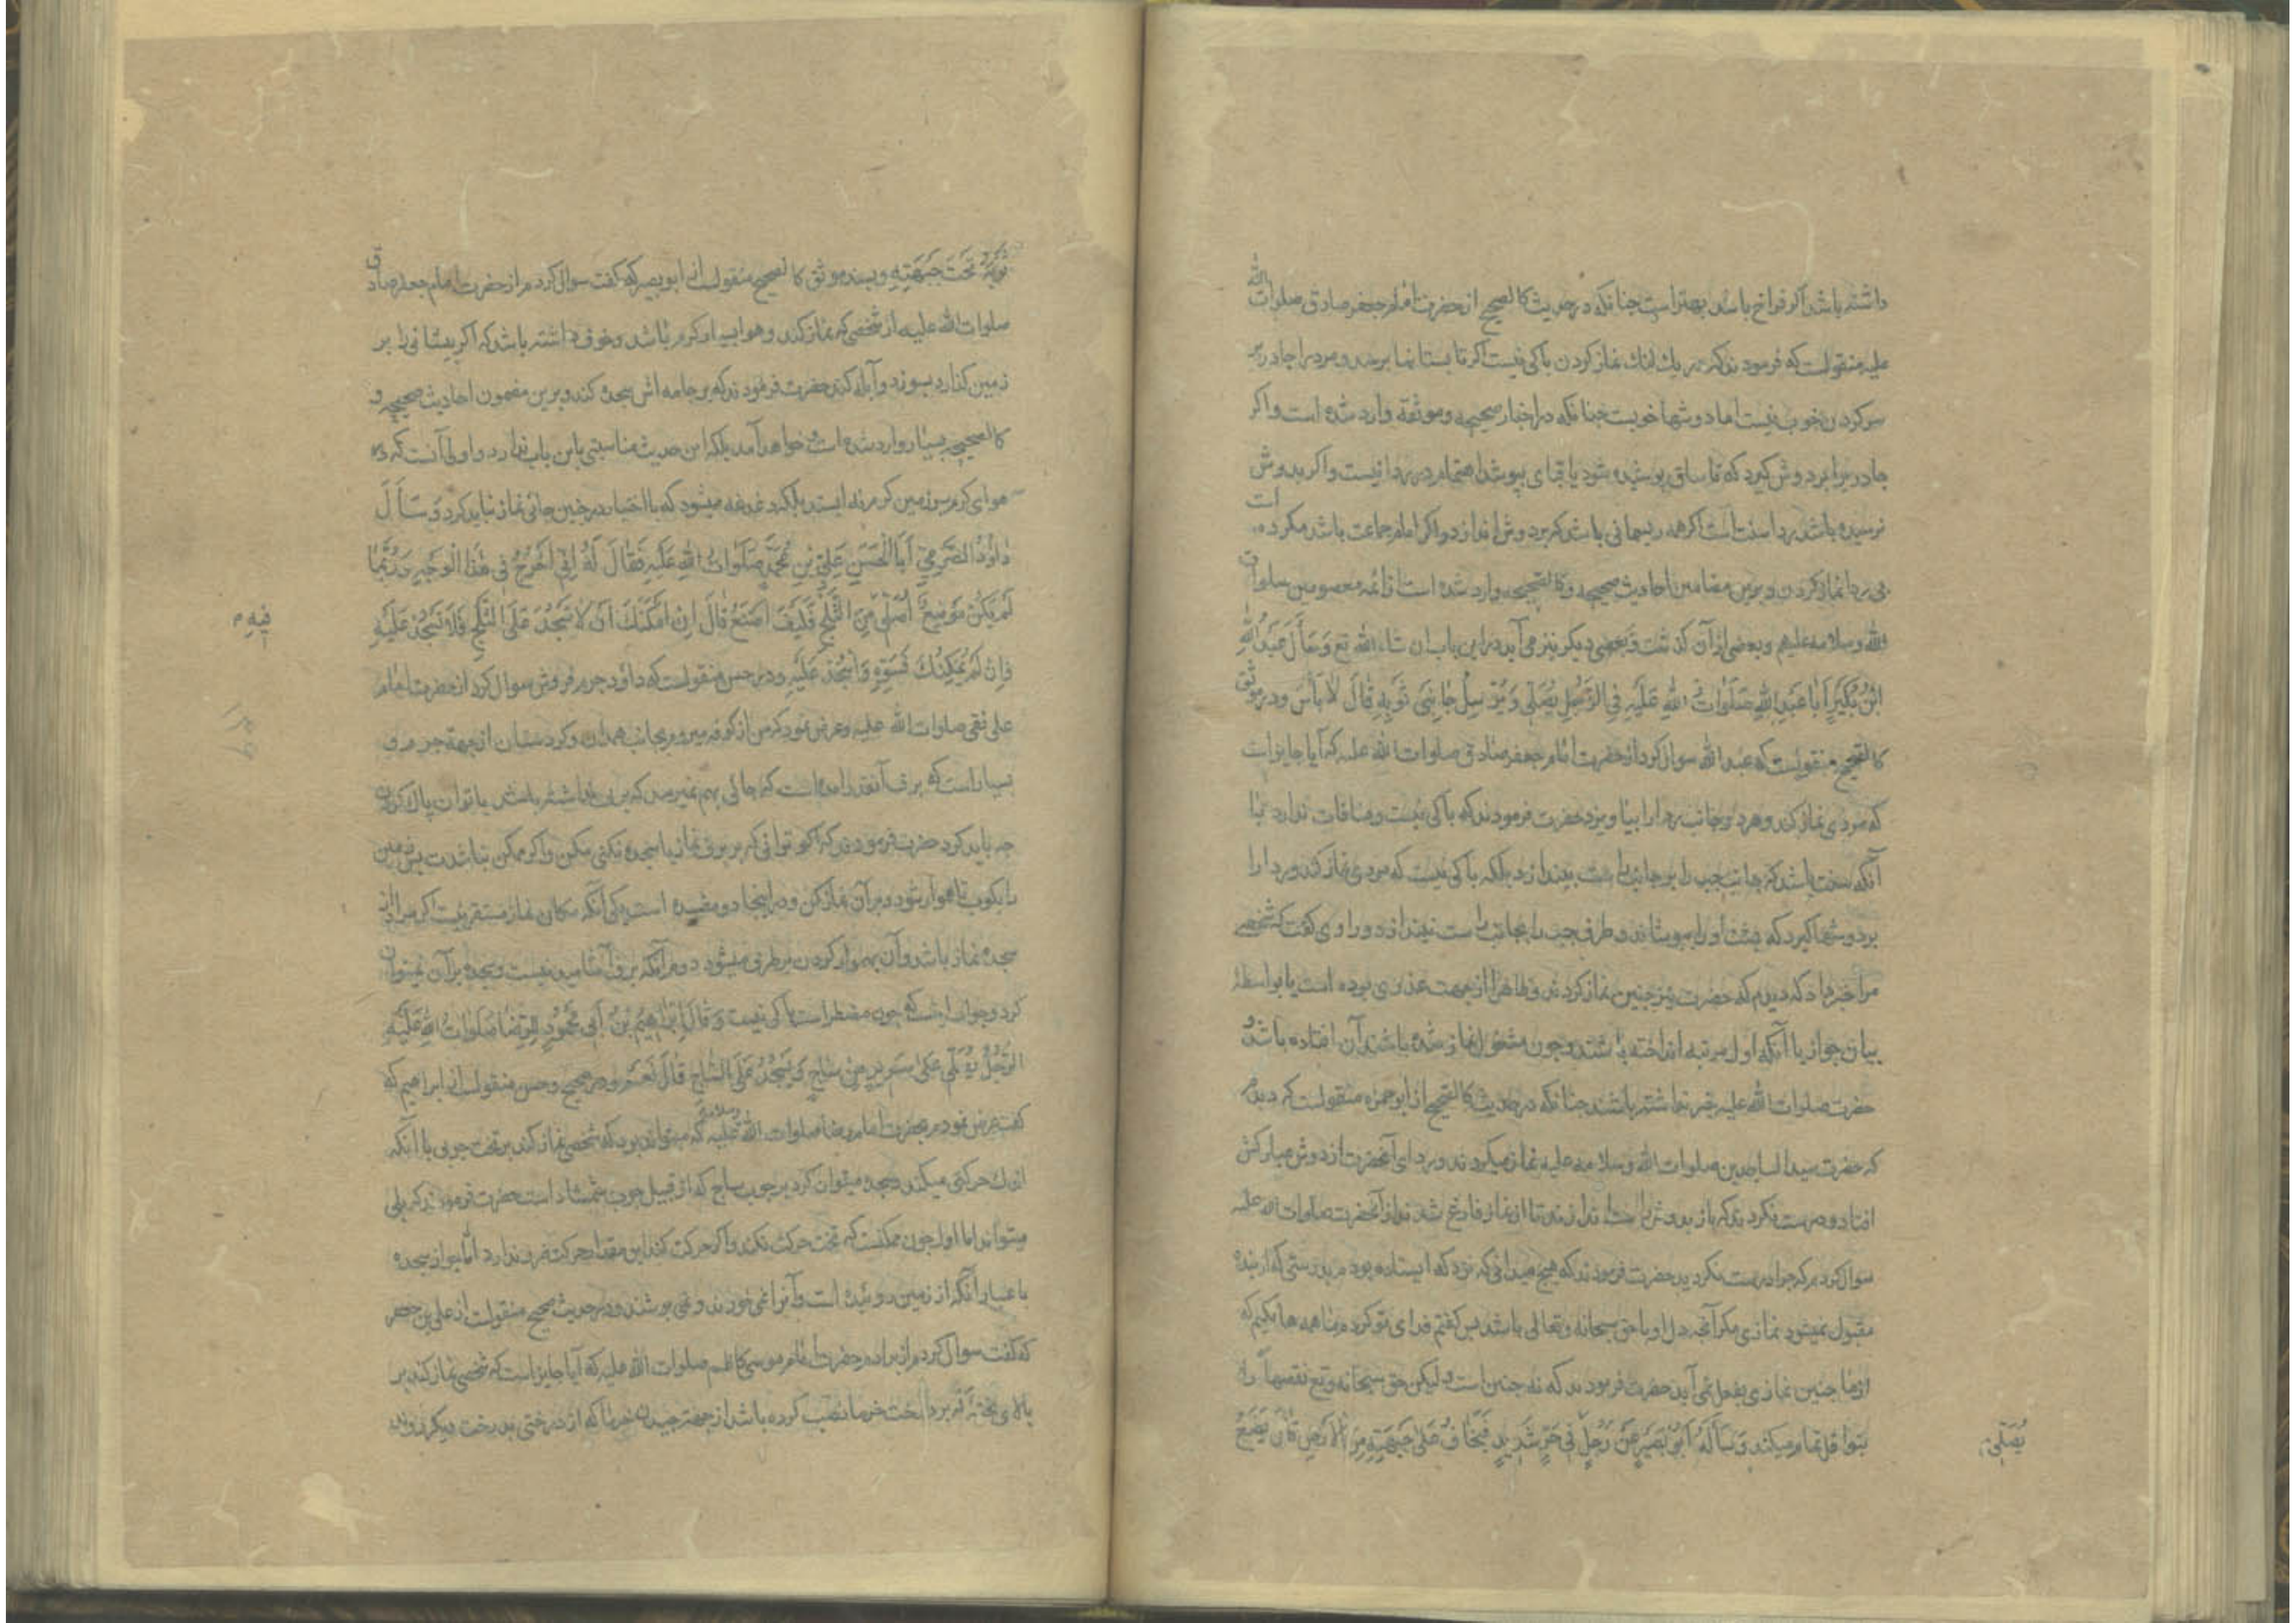 داشته باشد اگر فراخ باشد بهتر است چنانکه در حدیث کالصحیح از حضرت امام جعفر صادق صلوات الله
علیه منقولست که فرمودند که در یک لنک نماز کردن باکی نیست اکر تا پستانها برسد و مرد را چادر بر
سر کردن خوب نیست اما دوشها خوبست چنانکه در اخبار صحیحه و موثقه وارد شده است و اکر
چادر برابر دوش کیرد که تا ساق پوشیده شود یا قبای بپوشد اهتمام در ردا نیست و اکر بدوش
نرسیده باشد ردا سنت است اکر همه ریسمانی باشد که بر دوش اندازد و اکر امام جماعت باشد مکروه است
بی ردا نماز کردن و برین مضامین احادیث صحیحه و کالصحیحه وارد شده است از ائمه معصومین صلوات
الله و سلامه علیهم و بعضی از آن کذشت و بعضی دیکر نیز می آید در این باب ان شاء الله تع وَسَأَلَ عَبْدُ اللهِ
ابْنُ بُكَيْرٍ اَبَا عَبْدِ اللهِ صَلَوَاتُ اللهِ عَلَيْهِ فِي الرَّجُلِ يُصَلِّي وَيُرْسِلُ جَانِبَيْ ثَوْبِهِ قَالَ لَا بَأْسَ ودر موثق
کالصحیح منقولست که عبد الله سوال کرد از حضرت امام جعفر صادق صلوات الله علیه که آیا جایز است
که مردی نماز کند و هر دو جانب ردا را بیاویزد حضرت فرمودند که باکی نیست و منافات ندارد با
آنکه سنت باشد که جانب چپ را بر جانب راست بیندازد بلکه باکی نیست که مردی نماز کند و ردا را
بر دوشها کیرد که پشت او را بپوشاند و طرف چپ را بجانب راست نیندازد و راوی کفت که شخصی
مرا خبر داد که دیدم که حضرت نیز چنین نماز کردند و ظاهرا از جهت عذری بوده است یا بواسطه
بیان جواز یا آنکه اول مرتبه انداخته باشند و چون مشغول نماز شده باشند آن افتاده باشد و
حضرت صلوات الله علیه خبر نداشته باشند چنانکه در حدیث کالصحیح از ابو حمزه منقولست که دیدم
که حضرت سید الساجدین صلوات الله و سلامه علیه نماز میکردند و ردای آنحضرت از دوش مبارکش
افتاد و درست نکردند که باز بدوش راست اندازند تا از نماز فارغ شدند از آنحضرت صلوات الله علیه
سوال کردم که چرا درست نکردید حضرت فرمودند که هیچ میدانی که نزد که ایستاده بودم بدرستی که از بنده
مقبول نمیشود نمازی مکر آنچه دل او با حق سبحانه وتعالی باشد پس کفتم فدای تو کردم ما همه هالکیم که
از ما چنین نمازی بفعل نمی آید حضرت فرمودند که نه چنین است ولیکن حق سبحانه وتع نقصها را
بنوافل تمام میکند وَسَأَلَهُ اَبُو بَصِيرٍ عَنْ رَجُلٍ فِي حَرٍّ شَدِيدٍ فَيَخَافُ عَلَى جَبْهَتِهِ مِنَ الْاَرْضِ قَالَ يَضَعُ
يُصَلِّي م
ثَوْبَهُ تَحْتَ جَبْهَتِهِ وبسند موثق کالصحیح منقولست از ابو بصیر که کفت سوال کردم از حضرت امام جعفر صادق
صلوات الله علیه از شخصی که نماز کند و هوا بسیار کرم باشد و خوف داشته باشد که اکر پیشانی را بر
زمین کذارد بسوزد و آبله کند حضرت فرمودند که بر جامه اش سجده کند و برین مضمون احادیث صحیحه و
کالصحیحه بسیار وارد شده است و خواهد آمد بلکه این حدیث مناسبتی باین باب ندارد و اولی آنست که در
هوای کرم بر زمین کرم نه ایستد بلکه دغدغه میشود که با اختیار در چنین جائی نماز نباید کرد وَسَأَلَ
دَاوُدُ الصَّرْمِيُّ اَبَا الْحَسَنِ عَلِيَّ بْنَ مُحَمَّدٍ صَلَوَاتُ اللهِ عَلَيْهِ فَقَالَ لَهُ اِنِّي اَخْرُجُ فِي هٰذَا الْوَجْهِ وَرُبَّمَا
لَمْ يَكُنْ مَوْضِعٌ اُصَلِّي مِنَ الثَّلْجِ فَكَيْفَ اَصْنَعُ قَالَ اِنْ اَمْكَنَكَ اَنْ لَا تَسْجُدَ عَلَى الثَّلْجِ فَلَا تَسْجُدْ عَلَيْهِ
فِيهِ م
وَاِنْ لَمْ يُمْكِنْكَ فَسَوِّهِ وَاسْجُدْ عَلَيْهِ ودر حسن منقولست که داود جرم فروش سوال کرد از حضرت امام
علی نقی صلوات الله علیه و عرض نمود که من از کوفه میروم بجانب همدان و کردستان از جهة جرم و
بسیار است که برف آنقدر آمده است که جائی بهم نمیرسد که برف نداشته باشد یا توان پاک کردن
چه باید کرد حضرت فرمودند که اکر توانی که بر برف نماز یا سجده نکنی مکن و اکر ممکن نباشدت پس زمین
را بکوب تا هموار شود و بر آن نماز کن و در اینجا دو مفسده است یکی آنکه مکان نماز مستقر نیست اکر مراد از
سجده نماز باشد و آن بهموار کردن برطرف میشود دوم آنکه برف از زمین نیست و سجده بر آن نمیتوان
کرد و جواب اینست که چون مضطر است باکی نیست وَقَالَ اِبْرٰهِيمُ بْنُ اَبِي مَحْمُودٍ لِلرِّضَا صَلَوَاتُ اللهِ عَلَيْهِ
الرَّجُلُ يُصَلِّي عَلَى سَرِيرٍ مِنْ سَاجٍ وَيَسْجُدُ عَلَى السَّاجِ قَالَ نَعَمْ ودر صحیح و حسن منقولست از ابراهیم که
کفت عرض نمودم بحضرت امام رضا صلوات الله وسلامه علیه که میتواند بود که شخصی نماز کند بر تخت چوبی با آنکه
اندک حرکتی میکند و سجده میتوان کرد بر چوب ساج که از قبیل چوب شمشاد است حضرت فرمودند که بلی
میتواند اما اول چون ممکنست که تخت حرکت نکند و اکر حرکت کند این مقدار حرکت ضرر ندارد اما جواز سجده
باعتبار آنکه از زمین روئیده است و آنرا نمی خورند و نمی پوشند ودر حدیث صحیح منقولست از علی بن جعفر
که کفت سوال کردم از برادرم حضرت امام موسی کاظم صلوات الله علیه که آیا جایز است که شخصی نماز کند بر
بالای تخته که بر درخت خرما نصب کرده باشد از جهة چیدن خرما که از درختی بدرخت دیکر روند